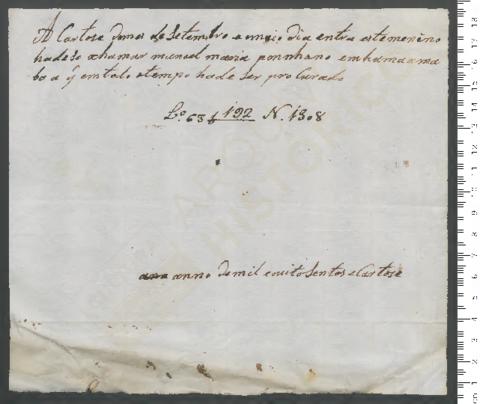 A Cartose do mes de Setembro e meio dia entra este menino
hade se xhamar manoel maria ponnhano em hama a ma
bo a q em todo otempo hade ser procurado
Lº 63 f 192 N. 1308
anno de mil eouito Sentos e Cartose